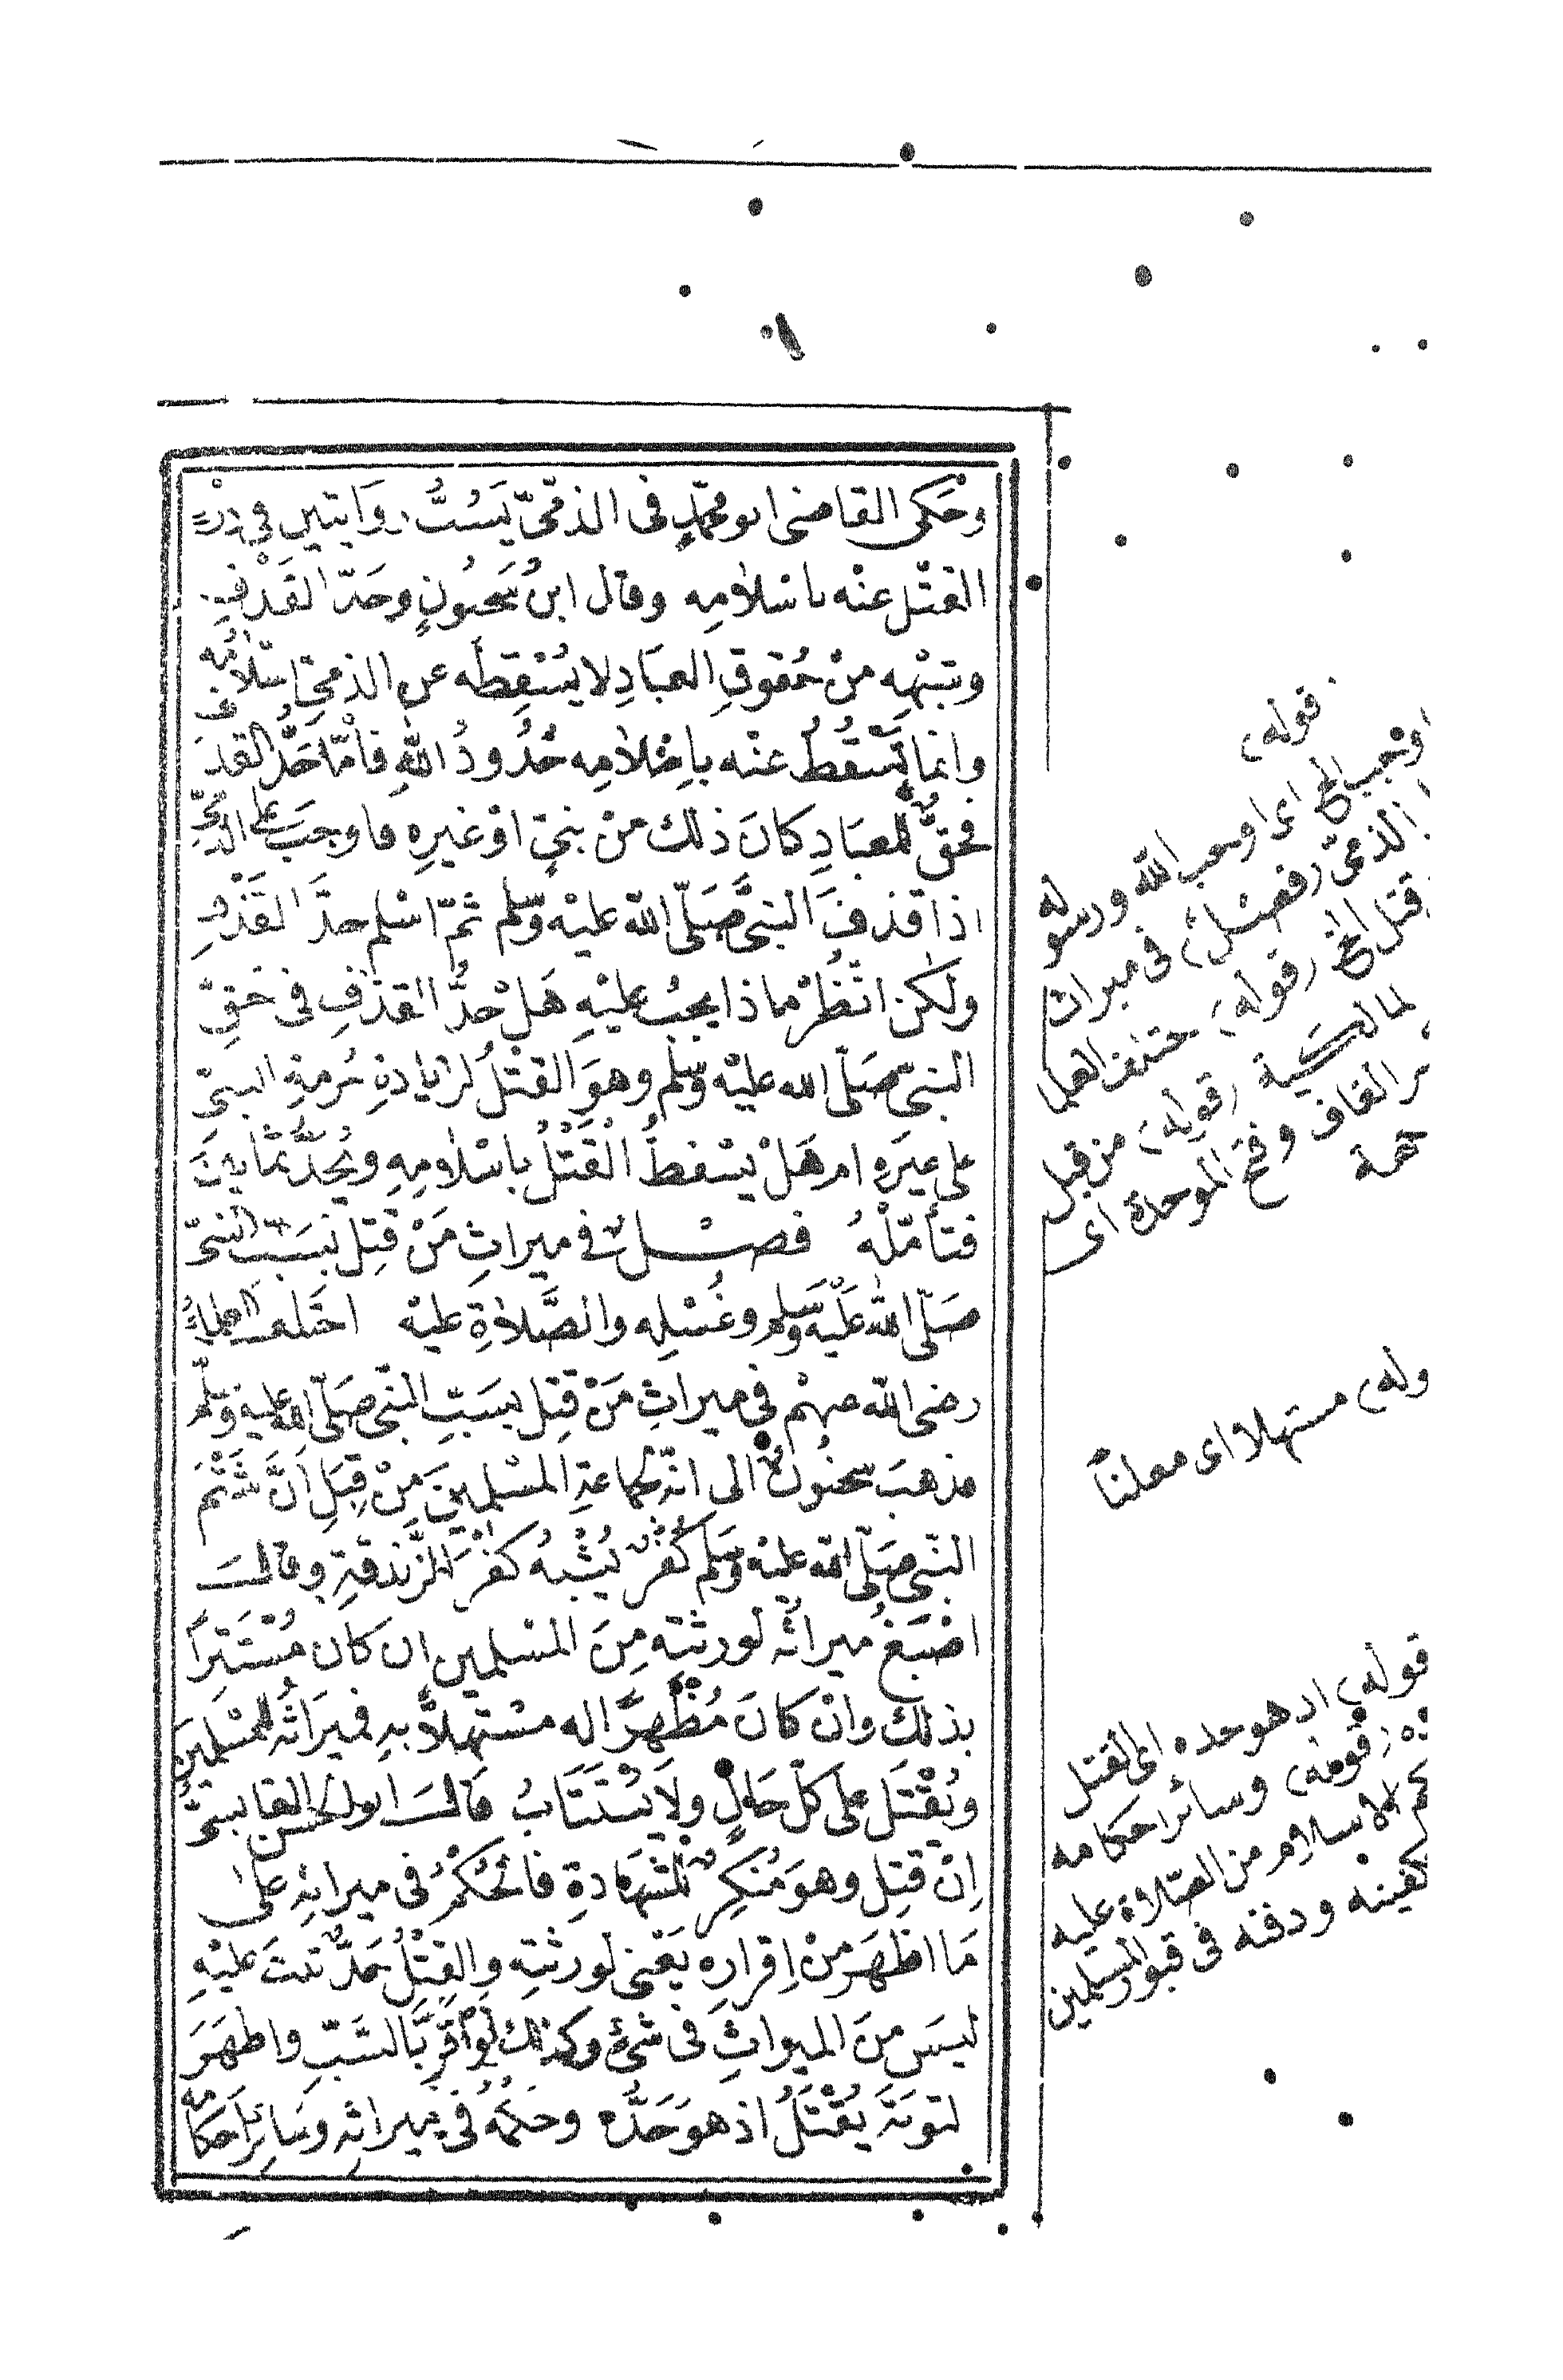 وَحَكَى القاضى ابو محمّدٍ فى الذمّىّ يَسُبُّ روَايتين فى دَرْءِ
القتْل عنْه باسْلامِه وقال ابنُ سَحنُونٍ وحَدّ القَذفِ
وشبْهِه منْ حُقوقِ العبَادِ لا يُسْقِطه عن الذمىّ اسْلامُه
وانما يَسْقُطُ عنْه باِسْلامِه حُدُودُ اللهِ فأمّا حَدُّ القذف
فحقٌّ للعبَادِ كانَ ذلك منْ نبىٍّ اوْ غيرِه فاوجبَ على الذمىّ
اذا قذفَ النبىَّ صَلّى الله عليْه وسّلم ثمّ اسْلم حدَّ القَذْفِ
ولكن انْظُرْ ماذا يجبُ عليْهِ هَلْ حدُّ القذفِ فى حَقِّ
النبى صَلّى الله عليْه وسّلم وهوَ القتْلُ لزيادةِ حُرمةِ النبىّ
على غيرَه ام هَلْ يسْقطُ الْقَتْلُ باسْلامِهِ ويُحَدُّ ثمانينَ
فتأمّلْهُ فصْل فى ميراثِ مَنْ قُتِل بسَبّ النبىّ
صَلّى الله عَليْه وسَلم وغَسْلِه والصَّلاةِ عليْه اختَلف العلماءُ
رضى الله عنهْم فى ميراثِ مَنْ قتِل بسَبّ النّبى صَلّى الله عليه وسلّم
فذهبَ سحنُونٌ الى انّه لجماعةِ المسْلمينَ مِنْ قِبَلِ اَنَّ شَتْمَ
النّبى صَلّى الله عليْه وسَلم كُفْرٌ يُشْبهُ كفْرَ الزّندقةِ وقالَ
اصْبَغُ ميراثُه لورثتِه مِنَ المسْلمين ان كان مُسْتَتِراً
بذلكَ وانْ كانَ مُظْهِرًا له مسْتهِلاًّ بهِ فميَراثُه للمسْلمينَ
ويُقْتَل على كلّ حَالٍ ولَا يُسْتَتَابُ قالَ ابو الحَسَن القابسىُّ
اِنْ قتِل وهوَ مُنكِرٌ للشهَادةِ فالحُكْمُ فى ميراثِه علىٰ
مَا اظهَر منْ اِقرارِه يَعْنى لورثتِه والقتْلُ حَدٌّ ثبتَ عليْهِ
ليسَ منَ الميراثِ فى شئْ وكذلك لوْ اَقرَّ بالسّبّ واظهَرَ
لتوبَةَ يُقْتَلُ اذ هوَ حَدُّه وحُكمُهُ فى ميراثِه وسَائرِ احَكامِه
قوله
اوجب الخ اى اوجب الله ورسوله
الذمى (فصْل) فى ميراث
قتل الخ (قوله)
(قوله) من قبل
القاف وفتح الموحدة اى
جهة
وله) مستهلا اى معلناً
قوله) اذ هو حده اى القتل
(قوله) وسائر احكامه
الاسلام من الصّلاة عليه
كفينه ودفنه فى قبور المسلمين